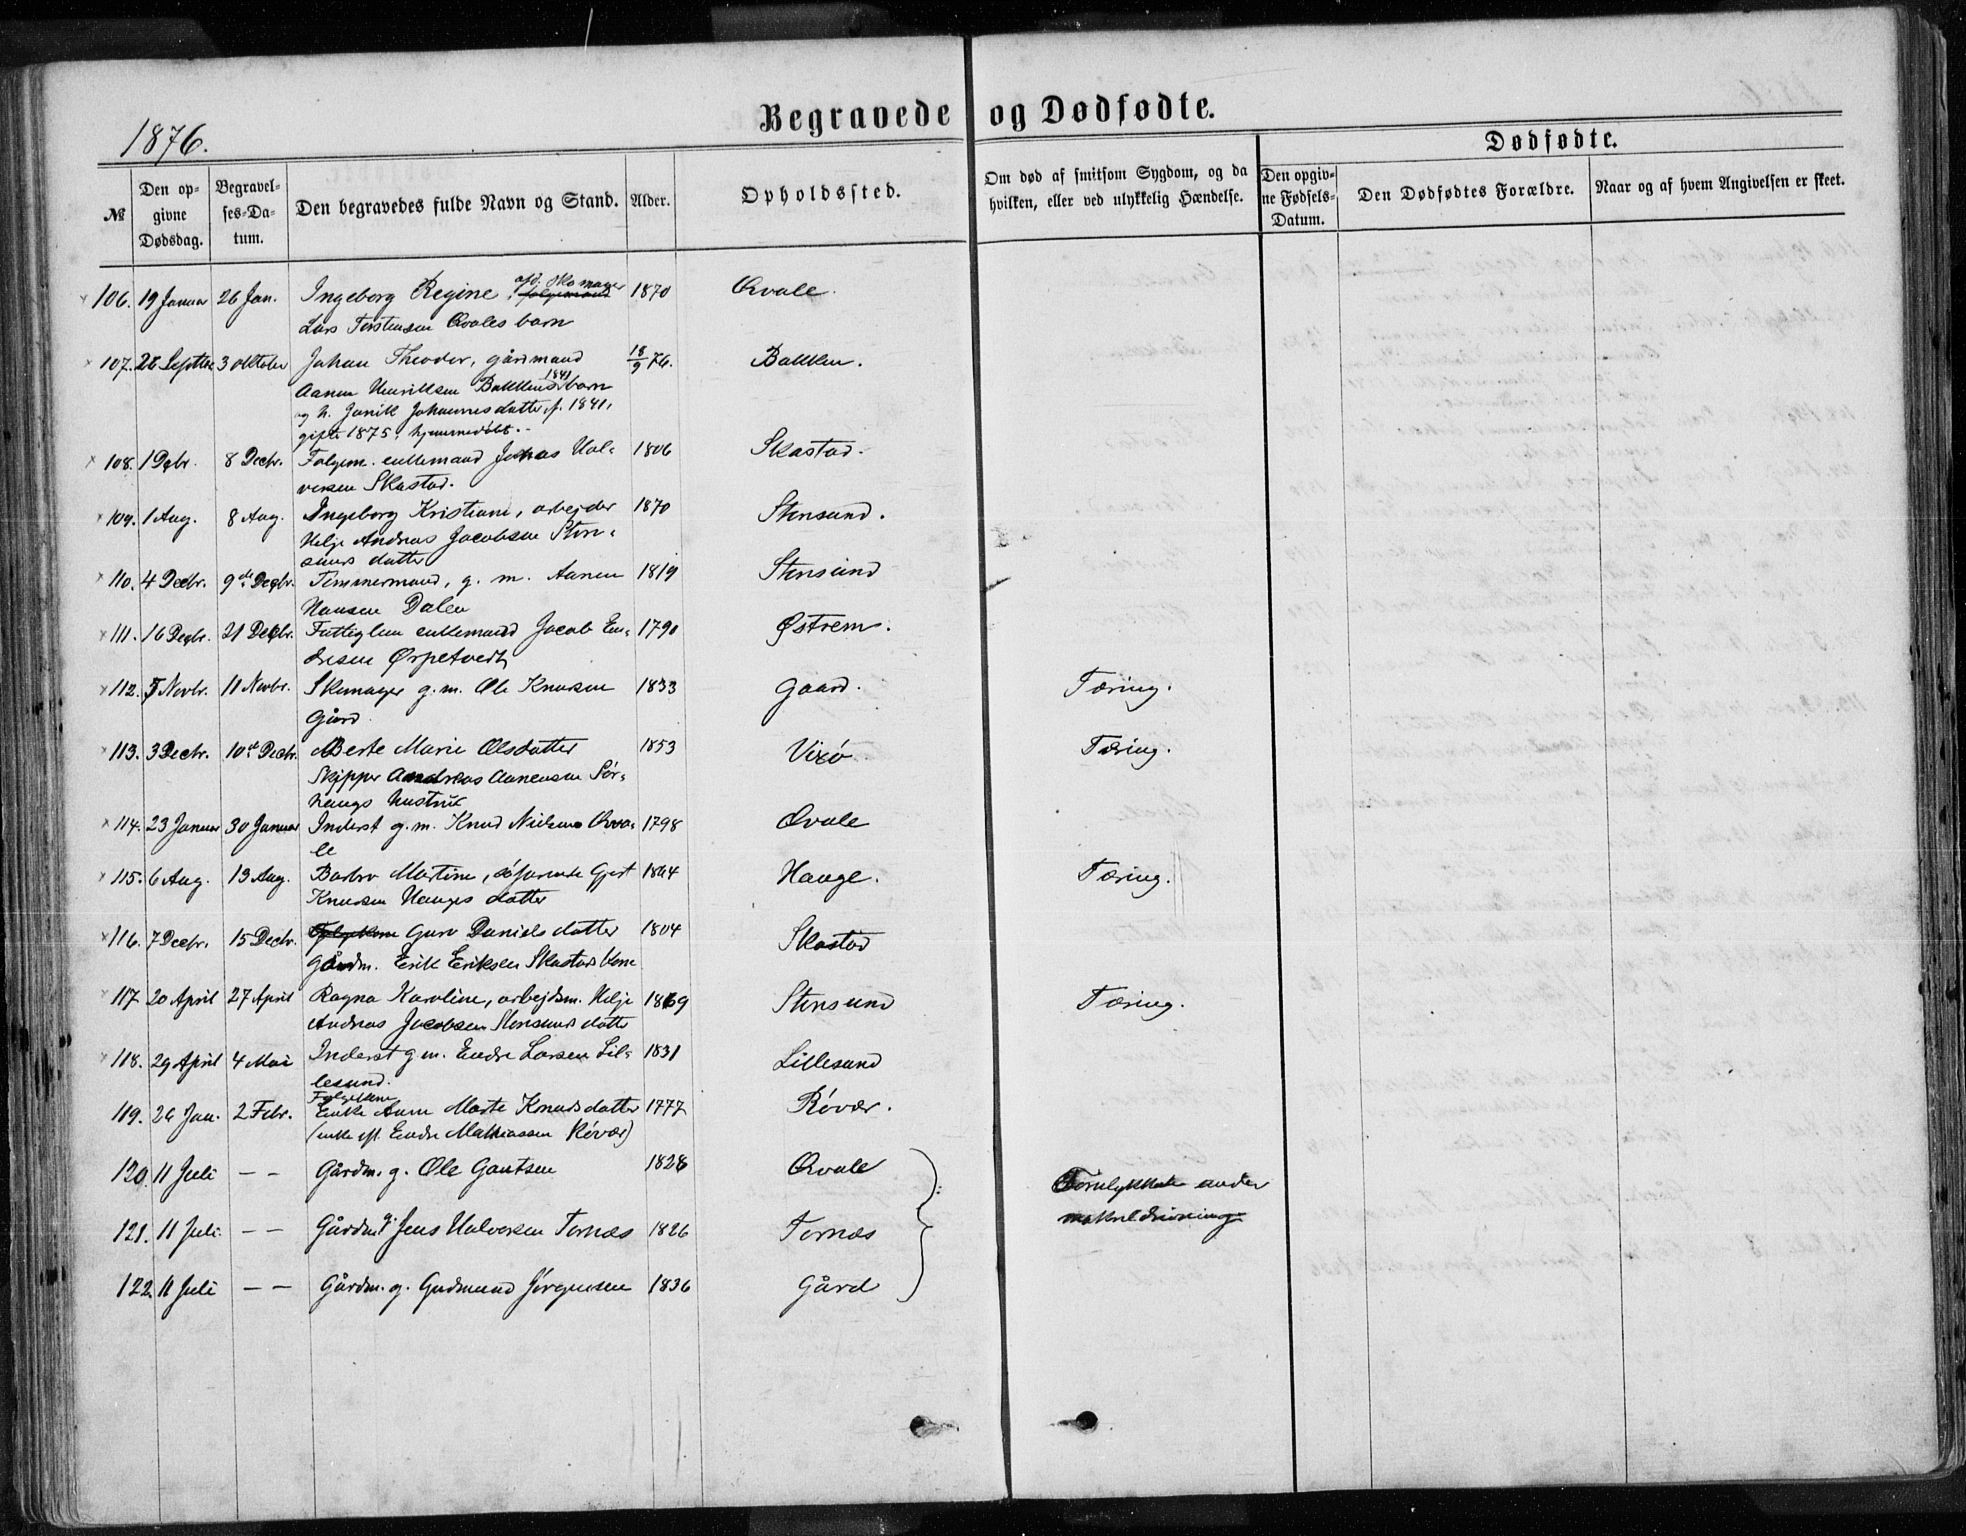 1876.
Begravede og Dødfødte.
Dødfødte.
№
Den opgivne Dødsdag.
Begravelses-Datum.
Den begravedes fulde Navn og Stand.
Alder.
Opholdssted.
Om død af smitsom Sygdom, og da hvilken, eller ved ulykkelig Hændelse.
Den opgivne Fødsels-Datum.
Den Dødfødtes Forældre.
Naar og af hvem Angivelsen er skeet.
106. 19 Januar 26 Jan. Ingeborg Regine, afd. Skomager 1870 Qvale.
Lars Torstensen Qvales barn
107. 26 Septbr 3 Oktober Johan Theodor, gårdmand 18/9 76. Bakken.
Aanen Henriksen Bakkens barn 1841
og h. Janik Johannesdatter f. 1841,
gifte 1875, hjemmedøbt.
108. 1 Decbr. 8 Decbr. Folgem. enkemand Johas Hal- 1806 Skastad.
versen Skastad.
109. 1 Aug. 8 Aug. Ingeborg Kristiane, arbejder 1870 Stensund.
Helje Andreas Jacobsen Sten-
sunds datter
110. 4 Decbr. 9de Decbr. Timmermand, g. m. Aanen 1819 Stensund
Hansen Dalen
111. 16 Decbr. 21 Decbr. Fattiglem enkemand Jacob En- 1790 Østrem.
dresen Ørpetvedt
112. 5 Novbr. 11 Novbr. Skomager g. m. Ole Knudsen 1833 Gaard. Tæring.
Gård.
113. 3 Decbr. 10de Decbr. Berte Marie Olsdatter 1853 Vixø Tæring.
Skipper Andreas Aanensen Sør-
haugs hustru
114. 23 Januar 30 Januar Inderst g. m. Knud Nielsen Qva- 1798 Qvale
le
115. 6 Aug. 13 Aug. Barbro Martine, søfarende Gjert 1864 Hauge. Tæring.
Knudsen Hauges datter
116. 7 Decbr. 15 Decbr. Guro Danielsdatter 1804 Skastad
Gårdm. Erik Eriksen Skastads kone
117. 20 April 27 April Ragna Karoline, arbejdsm. Helje 1869 Stensund Tæring.
Andreas Jacobsen Stensunds datter
118. 29 April 4 Mai Inderst g. m. Endre Larsen Lil- 1831 Lillesund
lesund.
119. 26 Jan. 2 Febr. Folgekone Enke Anne Marte Knudsdatter 1777 Røvær.
(enke eft. Endre Mathiassen Røvær)
120. 11 Juli – – Gårdm. g. Ole Gautsen 1828 Qvale
Forulykket under
121. 11 Juli – – Gårdm. g. Jens Halvorsen Tornæs 1826 Tornæs makreldrivning
122. 11 Juli – – Gårdm. g. Gudmund Jørgensen 1836 Gård